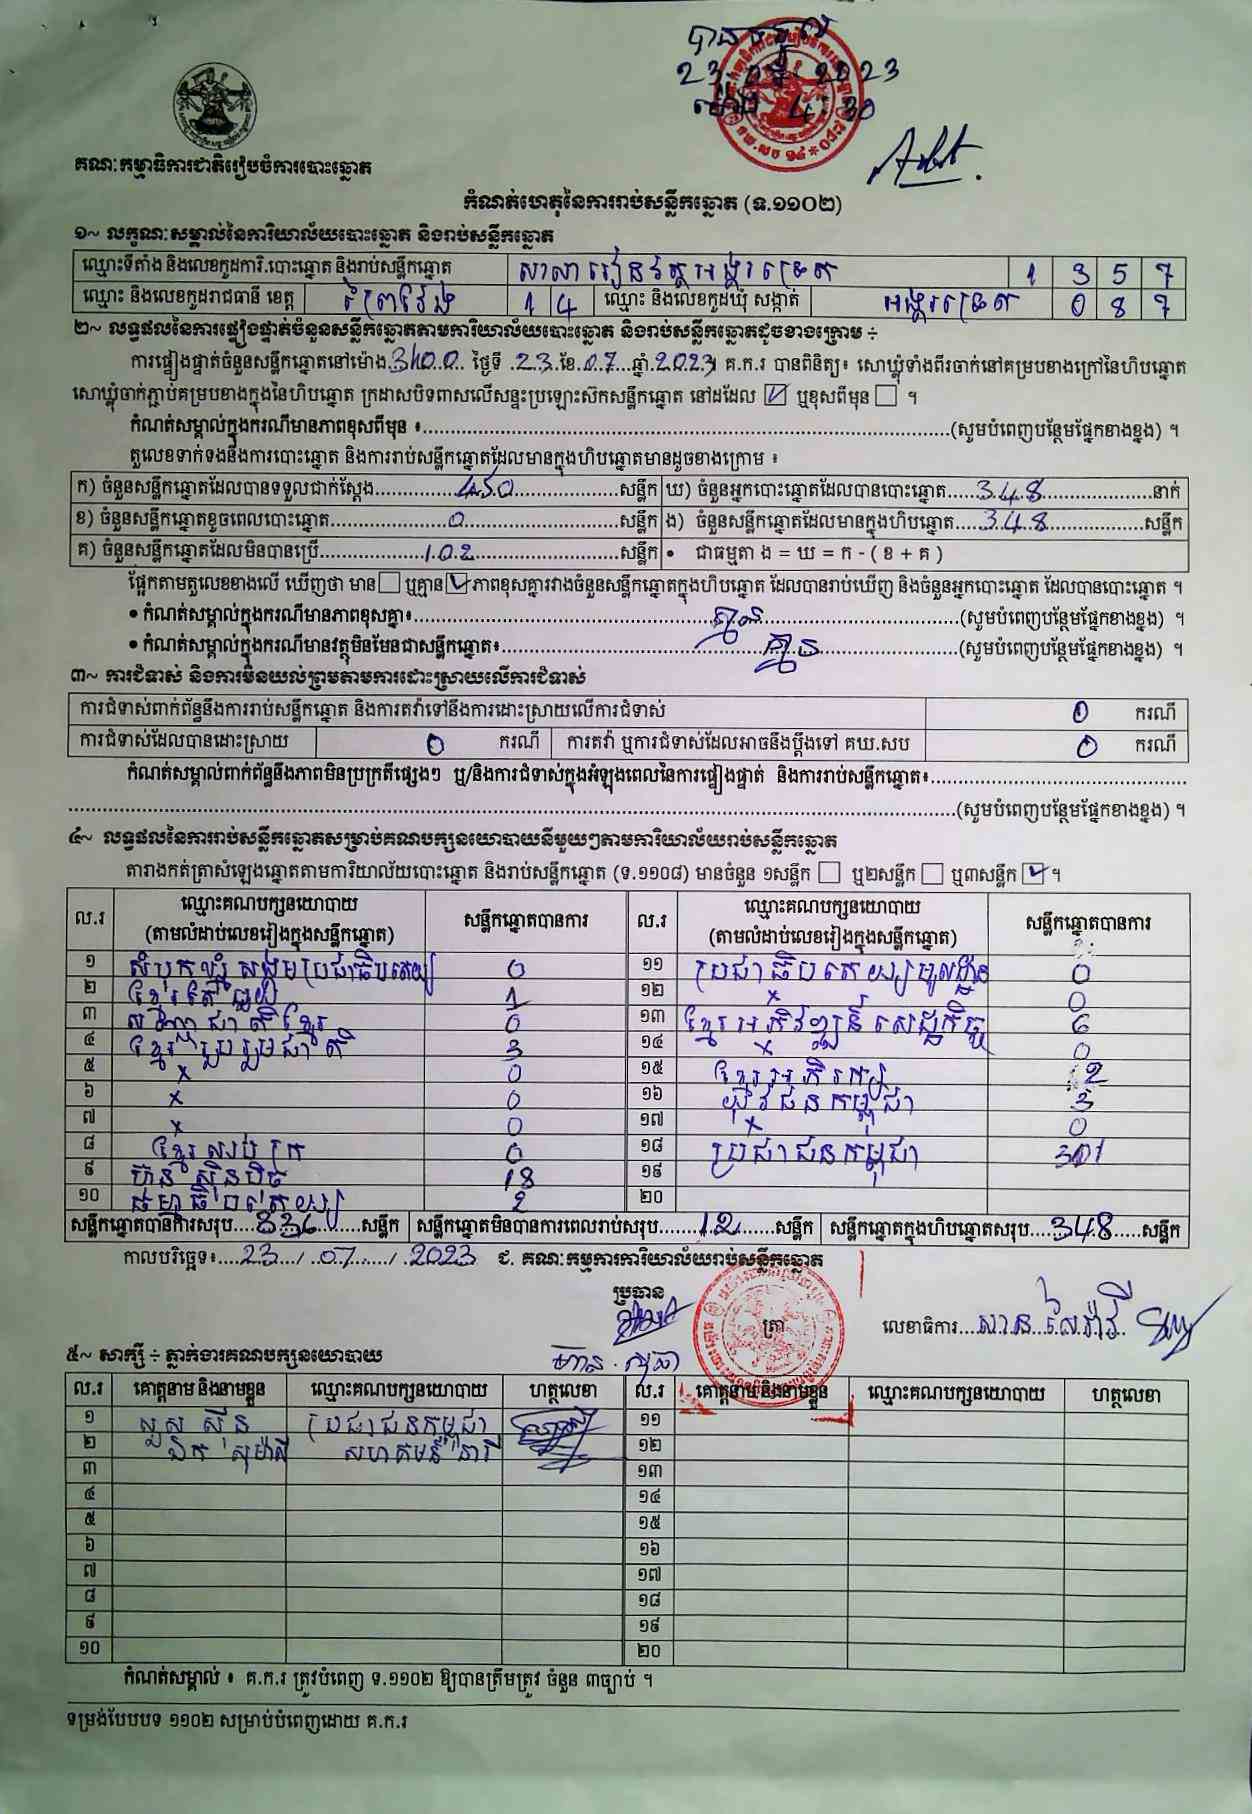 បានទទួល
23 2023
ម៉ោង 4:30
គណៈកម្មាធិការជាតិរៀបចំការបោះឆ្នោត
កំណត់ហេតុនៃការរាប់សន្លឹកឆ្នោត (ទ.១១០២)
១~ លក្ខណៈសម្គាល់នៃការិយាល័យបោះឆ្នោត និងរាប់សន្លឹកឆ្នោត
ឈ្មោះទីតាំង និងលេខកូដការិ.បោះឆ្នោត និងរាប់សន្លឹកឆ្នោត សាលារៀនវត្តអង្គរទ្រេត 1 3 5 7
ឈ្មោះ និងលេខកូដរាជធានី ខេត្ត ព្រៃវែង 1 4 ឈ្មោះ និងលេខកូដឃុំ សង្កាត់ អង្គរទ្រេត 0 8 7
២~ លទ្ធផលនៃការផ្ទៀងផ្ទាត់ចំនួនសន្លឹកឆ្នោតតាមការិយាល័យបោះឆ្នោត និងរាប់សន្លឹកឆ្នោតដូចខាងក្រោម ÷
ការផ្ទៀងផ្ទាត់ចំនួនសន្លឹកឆ្នោតនៅម៉ោង 3h00 ថ្ងៃទី 23 ខែ 07 ឆ្នាំ 2023 គ.ក.រ បានពិនិត្យ៖ សោឃ្លុំទាំងពីរចាក់នៅគម្របខាងក្រៅនៃហិបឆ្នោត
សោឃ្លុំចាក់ភ្ជាប់គម្របខាងក្នុងនៃហិបឆ្នោត ក្រដាសបិទពាសលើសន្ទះប្រឡោះស៊កសន្លឹកឆ្នោត នៅដដែល ☑ ឬខុសពីមុន ☐ ។
កំណត់សម្គាល់ក្នុងករណីមានភាពខុសពីមុន ៖......(សូមបំពេញបន្ថែមផ្នែកខាងខ្នង) ។
តួលេខទាក់ទងនឹងការបោះឆ្នោត និងការរាប់សន្លឹកឆ្នោតដែលមានក្នុងហិបឆ្នោតមានដូចខាងក្រោម ៖
ក) ចំនួនសន្លឹកឆ្នោតដែលបានទទួលជាក់ស្តែង 450 សន្លឹក ឃ) ចំនួនអ្នកបោះឆ្នោតដែលបានបោះឆ្នោត 348 នាក់
ខ) ចំនួនសន្លឹកឆ្នោតខូចពេលបោះឆ្នោត 0 សន្លឹក ង) ចំនួនសន្លឹកឆ្នោតដែលមានក្នុងហិបឆ្នោត 348 សន្លឹក
គ) ចំនួនសន្លឹកឆ្នោតដែលមិនបានប្រើ 102 សន្លឹក • ជាធម្មតា ង = ឃ = ក - ( ខ + គ )
ផ្អែកតាមតួលេខខាងលើ ឃើញថា មាន ☐ ឬគ្មាន ☑ ភាពខុសគ្នារវាងចំនួនសន្លឹកឆ្នោតក្នុងហិបឆ្នោត ដែលបានរាប់ឃើញ និងចំនួនអ្នកបោះឆ្នោត ដែលបានបោះឆ្នោត ។
• កំណត់សម្គាល់ក្នុងករណីមានភាពខុសគ្នា៖ គ្មាន (សូមបំពេញបន្ថែមផ្នែកខាងខ្នង) ។
• កំណត់សម្គាល់ក្នុងករណីមានវត្ថុមិនមែនជាសន្លឹកឆ្នោត៖ គ្មាន (សូមបំពេញបន្ថែមផ្នែកខាងខ្នង) ។
៣~ ការជំទាស់ និងការមិនយល់ព្រមតាមការដោះស្រាយលើការជំទាស់
ការជំទាស់ពាក់ព័ន្ធនឹងការរាប់សន្លឹកឆ្នោត និងការតវ៉ាទៅនឹងការដោះស្រាយលើការជំទាស់ 0 ករណី
ការជំទាស់ដែលបានដោះស្រាយ 0 ករណី ការតវ៉ា ឬការជំទាស់ដែលអាចនឹងប្តឹងទៅ គឃ.សប 0 ករណី
កំណត់សម្គាល់ពាក់ព័ន្ធនឹងភាពមិនប្រក្រតីផ្សេងៗ ឬ/និងការជំទាស់ក្នុងអំឡុងពេលនៃការផ្ទៀងផ្ទាត់ និងការរាប់សន្លឹកឆ្នោត៖......
......(សូមបំពេញបន្ថែមផ្នែកខាងខ្នង) ។
៤~ លទ្ធផលនៃការរាប់សន្លឹកឆ្នោតសម្រាប់គណបក្សនយោបាយនីមួយៗតាមការិយាល័យរាប់សន្លឹកឆ្នោត
តារាងកត់ត្រាសំឡេងឆ្នោតតាមការិយាល័យបោះឆ្នោត និងរាប់សន្លឹកឆ្នោត (ទ.១១០៨) មានចំនួន ១សន្លឹក ☐ ឬ២សន្លឹក ☐ ឬ៣សន្លឹក ☑ ។
ល.រ ឈ្មោះគណបក្សនយោបាយ (តាមលំដាប់លេខរៀងក្នុងសន្លឹកឆ្នោត) សន្លឹកឆ្នោតបានការ ល.រ ឈ្មោះគណបក្សនយោបាយ (តាមលំដាប់លេខរៀងក្នុងសន្លឹកឆ្នោត) សន្លឹកឆ្នោតបានការ
១ សំបុកឃ្មុំសង្គមប្រជាធិបតេយ្យ 0 ១១ ប្រជាធិបតេយ្យមូលដ្ឋាន 0
២ ខ្មែរតែមួយ 1 ១២ x 0
៣ សញ្ជាតិខ្មែរ 0 ១៣ ខ្មែរអភិវឌ្ឍន៍សេដ្ឋកិច្ច 6
៤ ខ្មែររួបរួមជាតិ 3 ១៤ x 0
៥ x 0 ១៥ ខ្មែរអភិរក្ស 2
៦ x 0 ១៦ យុវជនកម្ពុជា 3
៧ x 0 ១៧ x 0
៨ ខ្មែរឈប់ក្រ 0 ១៨ ប្រជាជនកម្ពុជា 301
៩ ហ៊្វុនស៊ិនប៉ិច 18 ១៩
១០ ធម្មាធិបតេយ្យ 2 ២០
សន្លឹកឆ្នោតបានការសរុប 336 សន្លឹក សន្លឹកឆ្នោតមិនបានការពេលរាប់សរុប 12 សន្លឹក សន្លឹកឆ្នោតក្នុងហិបឆ្នោតសរុប 348 សន្លឹក
កាលបរិច្ឆេទ៖ 23 / 07 / 2023 ជ. គណៈកម្មការការិយាល័យរាប់សន្លឹកឆ្នោត
ប្រធាន
ត្រា លេខាធិការ
៥~ សាក្សី ÷ ភ្នាក់ងារគណបក្សនយោបាយ
ល.រ គោត្តនាម និងនាមខ្លួន ឈ្មោះគណបក្សនយោបាយ ហត្ថលេខា ល.រ គោត្តនាម និងនាមខ្លួន ឈ្មោះគណបក្សនយោបាយ ហត្ថលេខា
១ សួស ស៊ីន ប្រជាជនកម្ពុជា ១១
២ ឯក សុម៉ាលី សហគមន៍ នារី ១២
៣ ១៣
៤ ១៤
៥ ១៥
៦ ១៦
៧ ១៧
៨ ១៨
៩ ១៩
១០ ២០
កំណត់សម្គាល់ ៖ គ.ក.រ ត្រូវបំពេញ ទ.១១០២ ឱ្យបានត្រឹមត្រូវ ចំនួន ៣ច្បាប់ ។
ទម្រង់បែបបទ ១១០២ សម្រាប់បំពេញដោយ គ.ក.រ